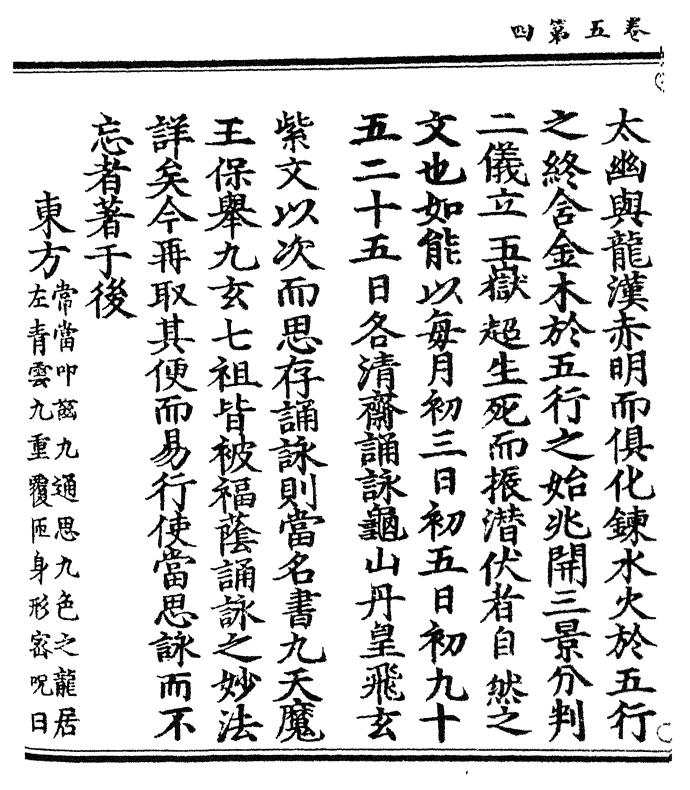 卷五第四
太幽與龍漢赤明而俱化鍊水火於五行
之終含金木於五行之始兆開三景分判
二儀立五嶽超生死而振潛伏者自然之
文也如能以每月初三日初五日初九十
五二十五日各清齋誦詠龜山丹皇飛玄
紫文以次而思存誦詠則當名書九天魔
王保舉九玄七祖皆被福蔭誦詠之妙法
詳矣今再取其便而易行使當思詠而不
忘者著于後
東方常當叩齒九通思九色之龍居
左青雲九重覆匝身形密呪曰